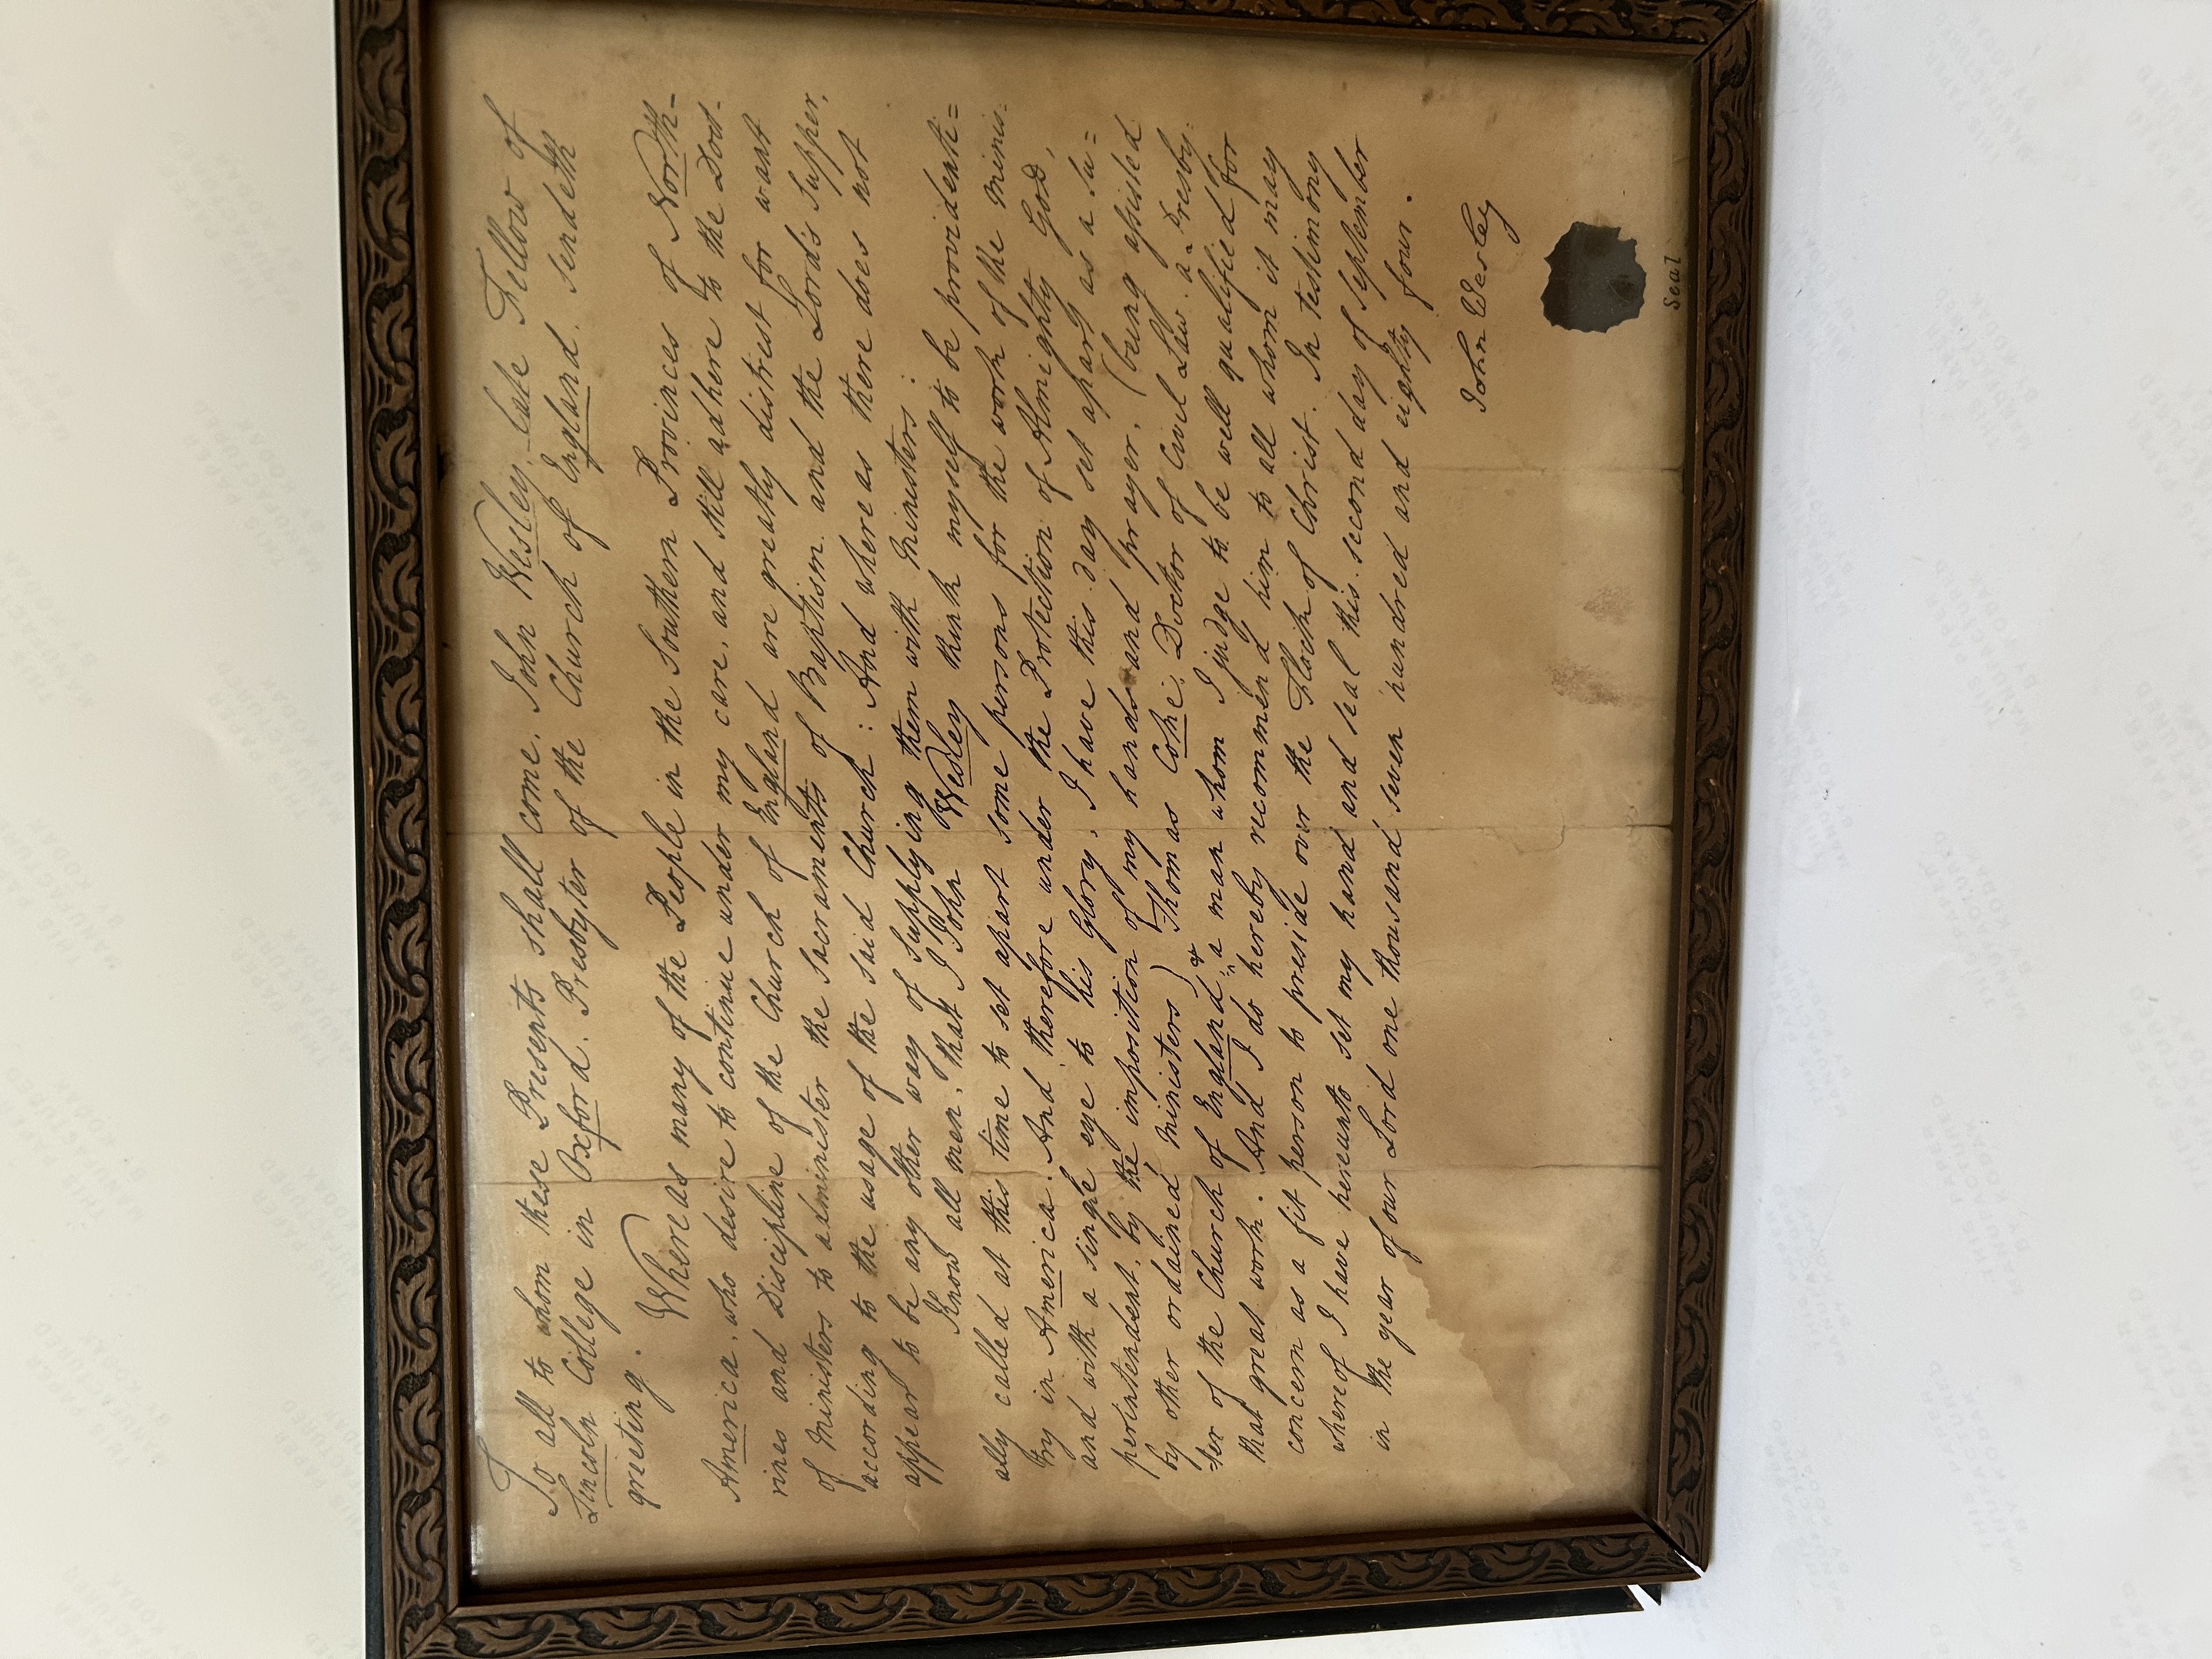 To all to whom these Presents shall come, John Wesley, late Fellow of
Lincoln College in Oxford. Presbyter of the Church of England, sendeth
greeting.
Whereas many of the People in the Southern Provinces of North-
America, who desire to continue under my care, and still adhere to the Doct-
rines and Discipline of the Church of England are greatly distrest for want
of Ministers to administer the Sacraments of Baptism and the Lord's Supper,
according to the usage of the said Church: And whereas there does not
appear to be any other way of supplying them with Ministers:
Know all men, that I John Wesley think myself to be providenti=
ally called at this time to set apart some persons for the work of the Minis=
try in America. And therefore under the Protection of Almighty God,
and with a single eye to his Glory, I have this day set apart as a Su=
perintendent, by the imposition of my hands and prayer, (being assisted
by other ordained Ministers) Thomas Coke, Doctor of Civil Law, a Presby=
=ter of the Church of England, & a man whom I judge to be well qualified for
that great work. And I do hereby recommend him to all whom it may
concern as a fit person to preside over the Flock of Christ. In testimony
whereof I have hereunto set my hand and seal this second day of September
in the year of our Lord one thousand seven hundred and eighty four.
John Wesley
Seal